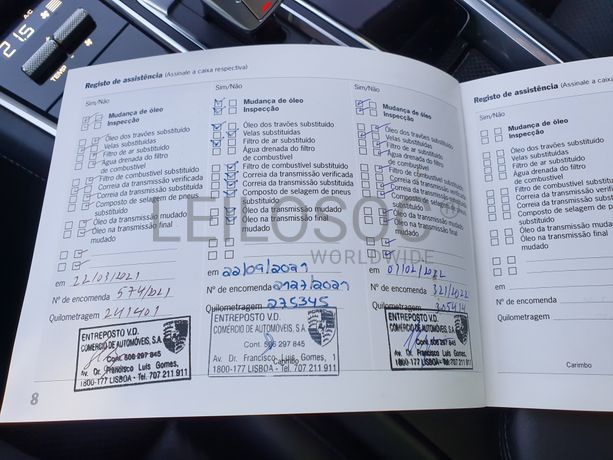 A/C
21.5
TEMP
Registo de assistência (Assinale a caixa respectiva)
Sim/Não
Mudança de óleo
Inspecção
Óleo dos travões substituído
Velas substituídas
Filtro de ar substituído
Água drenada do filtro
de combustível
Filtro de combustível substituído
Correia da transmissão verificada
Correia da transmissão substituída
Composto de selagem de pneus
substituído
Óleo da transmissão mudado
Óleo na transmissão final
mudado
em 22/03/2021
Nº de encomenda 574/2021
Quilometragem 241401
ENTREPOSTO V.D.
COMÉRCIO DE AUTOMÓVEIS, S.A.
Cont. 506 297 845
Av. Dr. Francisco Luis Gomes, 1
1800-177 LISBOA - Tel. 707 211 911
Sim/Não
Mudança de óleo
Inspecção
Óleo dos travões substituído
Velas substituídas
Filtro de ar substituído
Água drenada do filtro
de combustível
Filtro de combustível substituído
Correia da transmissão verificada
Correia da transmissão substituída
Composto de selagem de pneus
substituído
Óleo da transmissão mudado
Óleo na transmissão final
mudado
em 22/09/2021
Nº de encomenda 2127/2021
Quilometragem 275345
ENTREPOSTO V.D.
COMÉRCIO DE AUTOMÓVEIS, S.A.
Cont. 506 297 845
Av. Dr. Francisco Luis Gomes, 1
1800-177 LISBOA - Tel. 707 211 911
Carimbo
Sim/Não
Mudança de óleo
Inspecção
Óleo dos travões substituído
Velas substituídas
Filtro de ar substituído
Água drenada do filtro
de combustível
Filtro de combustível substituído
Correia da transmissão verificada
Correia da transmissão substituída
Composto de selagem de pneus
substituído
Óleo da transmissão mudado
Óleo na transmissão final
mudado
em 07/02/2022
Nº de encomenda 321/2022
Quilometragem
ENTREPOSTO V.D.
COMÉRCIO DE AUTOMÓVEIS, S.A.
Cont. 506 297 845
Av. Dr. Francisco Luis Gomes, 1
1800-177 LISBOA - Tel. 707 211 911
8
Registo de assistência (Assinale a caixa
Sim/Não
Mudança de óleo
Inspecção
Óleo dos travões substituído
Velas substituídas
Filtro de ar substituído
Água drenada do filtro
de combustível
Filtro de combustível
Correia da transmissão
Correia da transmissão
Composto de selagem
substituído
Óleo da transmissão mudado
Óleo na transmissão final
mudado
em
Nº de encomenda
Quilometragem
Carimbo
LEILOSOC®
WORLDWIDE